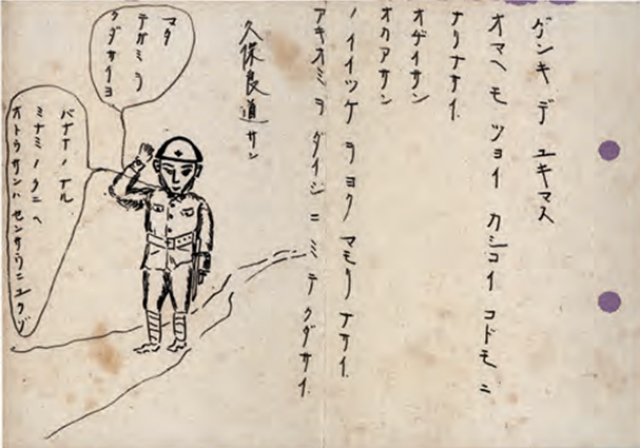 ゲンキデ ユキマス
オマヘモ ツヨイ カシコイ コドモニ
ナリナサイ.
オヂイサン
オカアサン
ノイイツケヲヨクマモリナサイ.
アキオミヲ ダイジニミテクダサイ.
久保良道サン
マタ
テガミヲ
クダサイヨ
バナナノナル
ミナミノクニヘ
オトウサンハ センサウニユクゾ